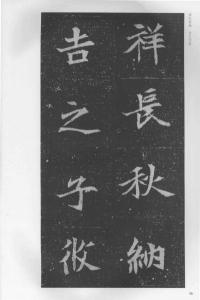 祥長秋納
吉之子攸